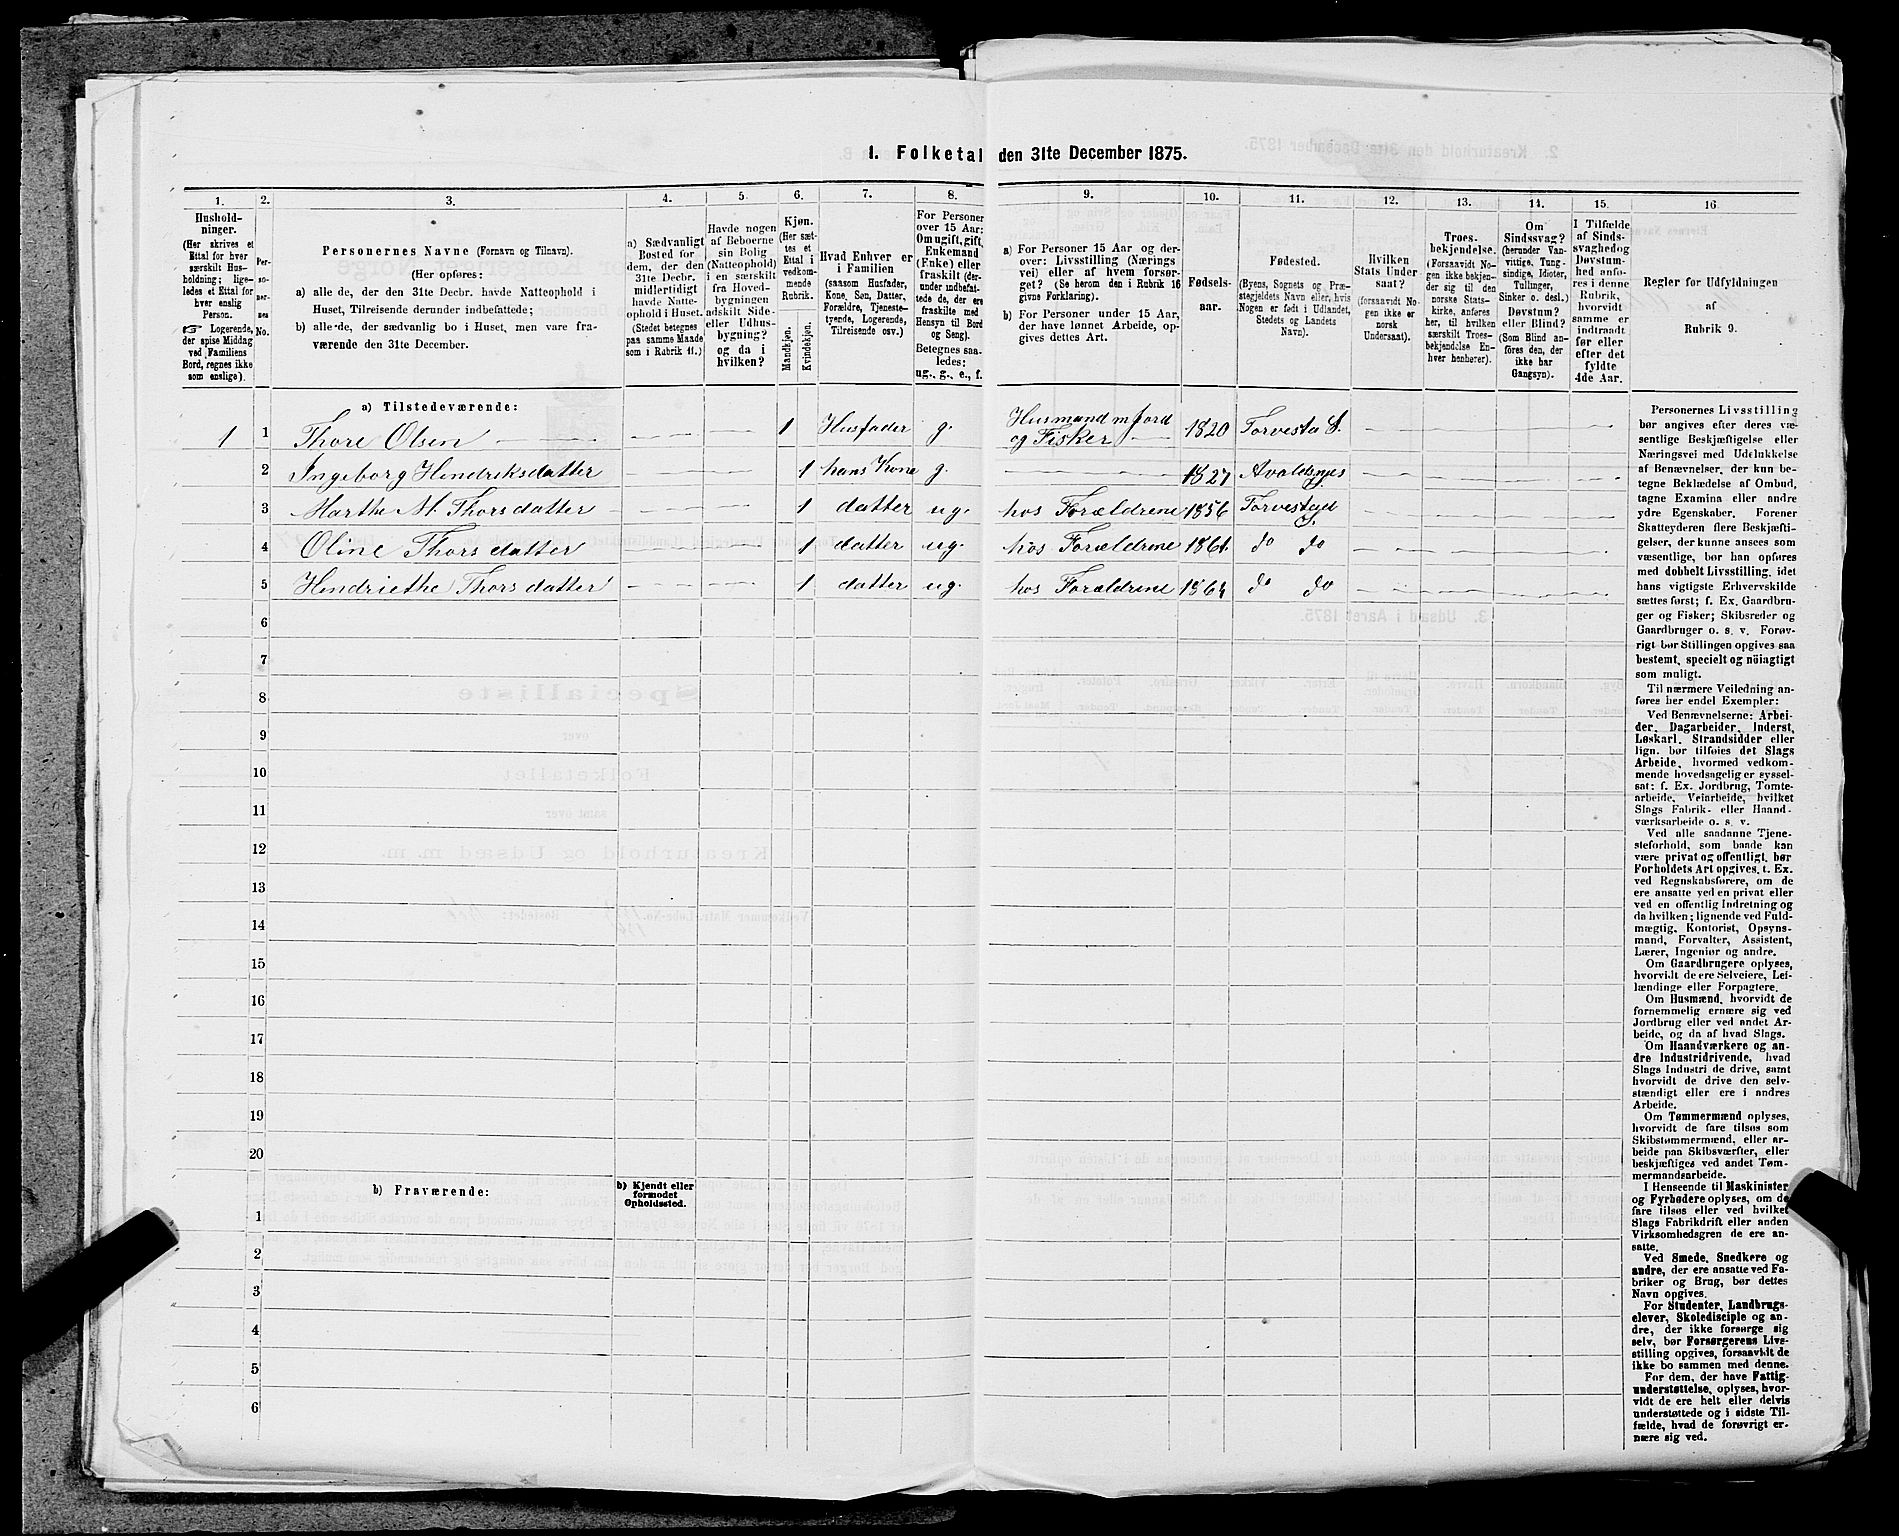 1. Folketal den 31te December 1875.
1.
2.
3.
4.
5.
6.
7.
8.
9.
10.
11.
12.
13.
14.
15.
16
Hushold-
ninger.
(Her skrives et
Ettal for hver
særskilt Hus-
holdning; lige-
ledes et Ettal for
hver enslig
Person.
☞ Logerende,
der spise Middag
ved Familiens
Bord, regnes ikke
som enslige).
Per-
so-
ner-
nes
No.
Personernes Navne (Fornavn og Tilnavn).
(Her opføres:
a) alle de, der den 31te Decbr. havde Natteophold i
Huset, Tilreisende derunder indbefattede;
b) alle de, der sædvanlig bo i Huset, men vare fra-
værende den 31te December.
a) Sædvanligt
Bosted for
dem, der den
31te Decbr.
midlertidigt
havde Natte-
ophold i Huset.
(Stedet betegnes
paa samme Maade
som i Rubrik 11.)
Havde nogen
af Beboerne
sin Bolig
(Natteophold)
i en særskilt
fra Hoved-
bygningen
adskilt Side-
eller Udhus-
bygning?
og da i
hvilken?
Kjøn.
(Her sæt-
tes et
Ettal i
vedkom-
mende
Rubrik.
Mandkjøn.
Kvindekjøn.
Hvad Enhver er
i Familien
(saasom Husfader,
Kone, Søn, Datter,
Forældre, Tjeneste-
tyende, Logerende,
Tilreisende osv.)
For Personer
over 15 Aar:
Om ugift, gift,
Enkemand
(Enke) eller
fraskilt (der-
under indbefat-
tede de, der ere
fraskilte med
Hensyn til Bord
og Seng).
Betegnes saa-
ledes:
ug., g., e., f.
a) For Personer 15 Aar og der-
over: Livsstilling (Nærings
vei) eller af hvem forsør-
get? (Se herom den i Rubrik 16
givne Forklaring).
b) For Personer under 15 Aar,
der have lønnet Arbeide, op-
gives dettes Art.
Fødsels-
aar.
Fødested.
(Byens, Sognets og Præ-
stegjeldets Navn eller, hvis
Nogen er født i Udlandet,
Stedets og Landets
Navn).
Hvilken
Stats Under
saat?
(forsaavidt No-
gen ikke er
norsk
Undersaat).
Troes-
bekjendelse.
(Forsaavidt No-
gen ikke bekjen-
der sig til den
norske Stats-
kirke, anføres
her, til hvilken
særskilt Troes-
bekjendelse En-
hver henhører).
Om
Sindssvag?
(herunder Van-
vittige, Tung-
sindige, Idioter,
Tullinger,
Sinker o. desl.)
Døvstum?
eller Blind?
(Som Blind an-
føres den, der
ikke har
Gangsyn).
I Tilfælde
af Sinds-
svaghed og
Døvstum-
hed anfø-
res i denne
Rubrik,
hvorvidt
samme er
indtraadt
før eller
efter det
fyldte
4de Aar.
Regler for Udfyldningen
af
Rubrik 9.
a) Tilstedeværende:
1 1 Thore Olsen 1 Husfader g. Husmand m Jord og Fisker 1820 Torvesta S.
2 Ingeborg Hendriksdatter 1 hans Kone g. 1827 Avaldsnes
3 Marthe M. Thorsdatter 1 datter ug. hos Forældrene 1856 Torvestad S.
4 Oline Thorsdatter 1 datter ug. hos Forældrene 1861. do do
5 Hendriethe Thorsdatter 1 datter ug. hos Forældrene 1864 do do
6
7
8
9
10
11
12
13
14
15
16
17
18
19
20
b) Fraværende:
b) Kjendt eller
formodet
Opholdssted.
1
2
3
4
5
6
Personernes Livsstilling
bør angives efter deres væ-
sentlige Beskjæftigelse eller
Næringsvei med Udelukkelse
af Benævnelser, der kun be-
tegne Beklædelse af Ombud,
tagne Examina eller andre
ydre Egenskaber. Forener
Skatteyderen flere Beskjæfti-
gelser, der kunne ansees som
væsentlige, bør han opføres
med dobbelt Livsstilling, idet
hans vigtigste Erhvervskilde
sættes først; f. Ex. Gaardbru-
ger og Fisker; Skibsreder og
Gaardbruger o. s. v. Forøv-
rigt bør Stillingen opgives saa
bestemt, specielt og nöiagtigt
som muligt.
Til nærmere Veiledning an-
føres her endel Exempler:
Ved Benævnelserne: Arbei-
der, Dagarbeider, Inderst,
Løskarl, Strandsidder eller
lign. bør tilføies det Slags
Arbeide, hvormed vedkom-
mende hovedsagelig er syssel-
sat; f. Ex. Jordbrug, Tomte-
arbeide, Veiarbeide, hvilket
Slags Fabrik- eller Haand-
værksarbeide o. s. v.
Ved alle saadanne Tjene-
steforhold, som baade kan
være privat og offentligt, bør
Forholdets Art opgives, t. Ex.
ved Regnskabsførere, om de
ere ansatte ved en privat eller
ved en offentlig Indretning og
da hvilken; lignende ved Fuld-
mægtig, Kontorist, Opsyns-
mand, Forvalter, Assistent,
Lærer, Ingeniør og andre.
Om Gaardbrugere oplyses,
hvorvidt de ere Selveiere, Lei-
lændinge eller Forpagtere.
Om Husmænd, hvorvidt de
fornemmelig ernære sig ved
Jordbrug eller ved andet Ar-
beide, og da af hvad Slags.
Om Haandværkere og an-
dre Industridrivende, hvad
Slags Industri de drive, samt
hvorvidt de drive den selv-
stændigt eller ere i andres
Arbeide.
Om Tømmermænd oplyses,
hvorvidt de fare tilsøs som
Skibstømmermænd, eller ar-
beide paa Skibsværfter, eller
beskjæftiges ved andet Tøm-
mermandsarbeide.
I Henseende til Maskinister
og Fyrbødere oplyses, om de
fare tilsøs eller ved hvilket
Slags Fabrikdrift eller anden
Virksomhedsgren de ere an-
satte.
Ved Smede, Snedkere og
andre, der ere ansatte ved Fa-
briker og Brug, bør dettes
Navn opgives.
For Studenter, Landbrugs-
elever, Skoledisciple og an-
dre, der ikke forsørge sig
selv, bør Forsørgerens Livs-
stilling opgives, forsaavidt de
ikke bo sammen med denne.
For dem, der have Fattig-
understøttelse, oplyses, hvor-
vidt de ere helt eller delvis
understøttede og i sidste Til-
fælde, hvad de forøvrigt er-
nære sig ved.